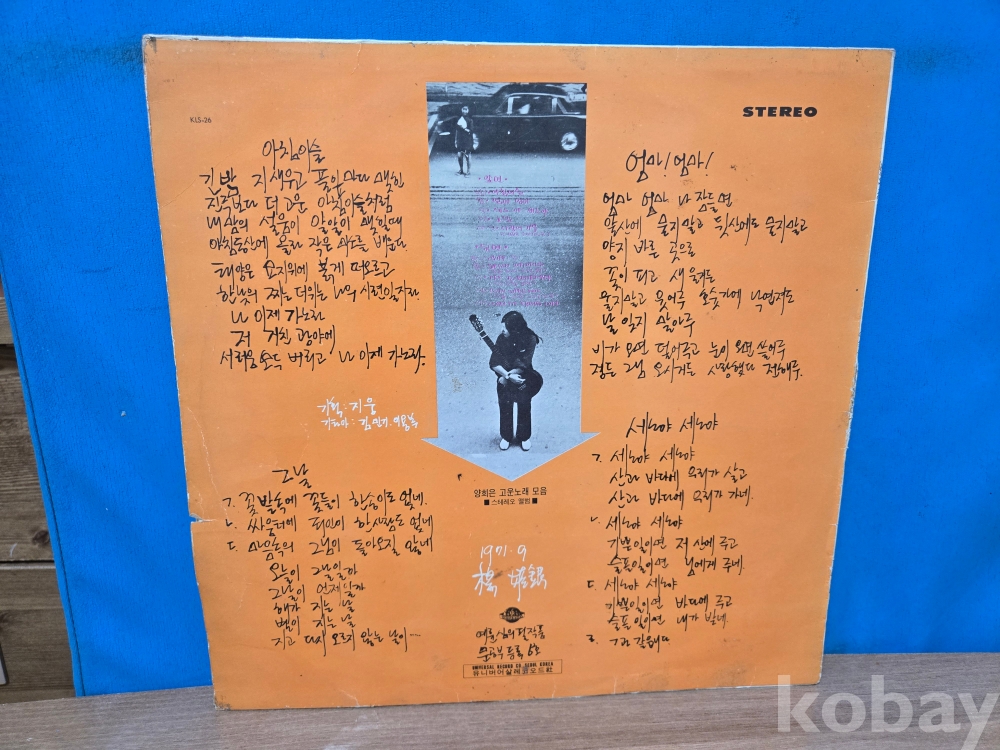 KLS-26
STEREO
아침이슬
긴밤 지새우고 풀잎마다 맺힌
진주보다 더 고운 아침이슬처럼
내 맘의 설움이 알알이 맺힐때
아침동산에 올라 작은 미소를 배운다
태양은 묘지위에 붉게 떠오르고
한낮의 찌는 더위는 나의 시련일지라
나 이제 가노라
저 거친 광야에
서러움 모두 버리고 나 이제 가노라.
기획: 지웅
기타아: 김민기. 이용복
그날
ㄱ. 꽃밭속에 꽃들이 한송이도 없네.
ㄴ. 싸움터에 죄인이 한사람도 없네
ㄷ. 마음속의 그님이 돌아오질 않네
오늘이 그날일까
그날이 언제일까
해가 지는 날
별이 지는 날
지고 다시 오르지 않는 날이…
양희은 고운노래 모음
■ 스테레오 앨범 ■
1971. 9
楊 姬銀
문공부 등록 6호
UNIVERSAL RECORD CO. SEOUL KOREA
유니버어살레코오드社
엄마! 엄마!
엄마 엄마 나 잠들면
앞산에 묻지말고 뒷산에도 묻지말고
양지 바른 곳으로
꽃이 피고 새 울거든
울지말고 웃어주 호숫가에 낙엽져도
날 잊지 말아주
비가 오면 덮어주고 눈이 오면 쓸어주
정든 그님 오시거든 사랑했다 전해주.
세노야 세노야
ㄱ. 세노야 세노야
산과 바다에 우리가 살고
산과 바다에 우리가 가네.
ㄴ. 세노야 세노야
기쁜일이면 저 산에 주고
슬픔일이면 님에게 주네.
ㄷ. 세노야 세노야
기쁨일이면 바다에 주고
슬픔일이면 내가 받네.
kobay